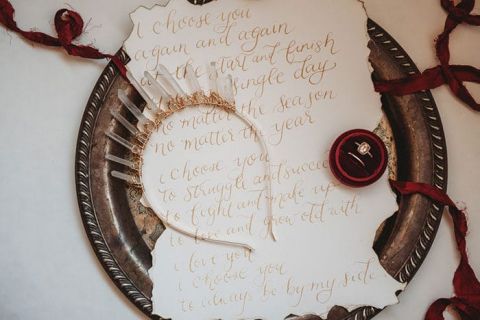 i choose you
again and again
at the start and finish
single day
no matter the season
no matter the year
i choose you
to struggle and succeed
to fight and make up
to love and grow old with
i love you
i choose you
to always be by my side